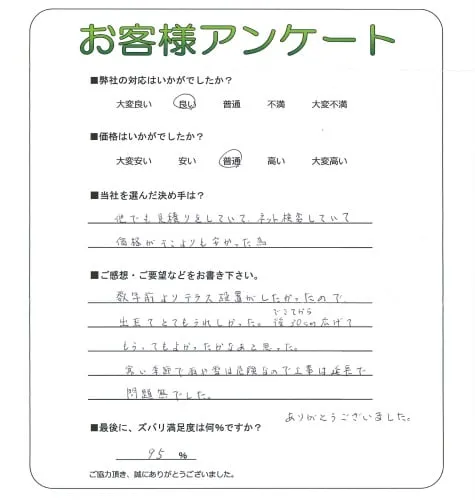 お客様アンケート
■弊社の対応はいかがでしたか？
大変良い 良い 普通 不満 大変不満
■価格はいかがでしたか？
大変安い 安い 普通 高い 大変高い
■当社を選んだ決め手は？
他でも見積りをしていて、ネット検索していて
価格がどこよりも安かった為
■ご感想・ご要望などをお書き下さい。
数年前よりテラス設置がしたかったので、
出来てとてもうれしかった。できてから後30cm広げて
もらってもよかったかなあと思った。
寒い季節で雨や雪は危険なので工事は延長で
問題無でした。
ありがとうございました。
■最後に、ズバリ満足度は何%ですか？
95 %
ご協力頂き、誠にありがとうございました。